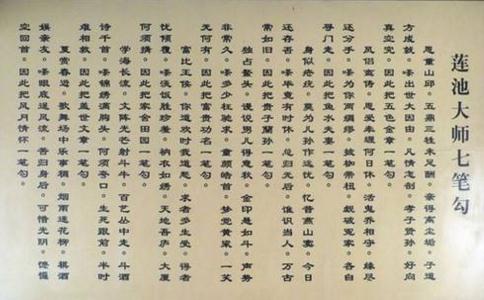 莲池大师七笔勾
恩重山邱。五鼎三牲未足酬。亲得离尘垢。子道
方成就。嗏出世大因由。凡情怎剖。孝子贤孙。好向
真空究。因此把五色金章一笔勾。
凤侣鸾俦。恩爱牵缠何日休。活鬼乔相守。缘尽
还分手。嗏为你两绸缪。披枷带杻。觑破冤家。各自
寻门走。因此把鱼水夫妻一笔勾。
身似疮疣。莫为儿孙作远忧。忆昔燕山窦。今日
还存否。嗏毕竟有时休。总归无后。谁识当人。万古
常如旧。因此把贵子兰孙一笔勾。
独占鳌头。谩说男儿得意秋。金印悬如斗。声势
非常久。嗏多少枉驰求。童颜皓首。梦觉黄粱。一笑
无何有。因此把富贵功名一笔勾。
富比王侯。你道欢时我道愁。求者多生受。得者
忧倾覆。嗏淡饭胜珍羞。衲衣如绣。天地吾庐。大厦
何须搆。因此把家舍田园一笔勾。
学海长流。文阵光芒射斗牛。百艺丛中走。斗酒
诗千首。嗏锦绣满胸头。何须夸口。生死跟前。半时
难相救。因此把盖世文章一笔勾。
夏赏春遊。歌舞场中乐事稠。烟雨迷花柳。棋酒
娱亲友。嗏眼底逞风流。苦归身后。可惜光阴。懡㦬
空回首。因此把风月情怀一笔勾。